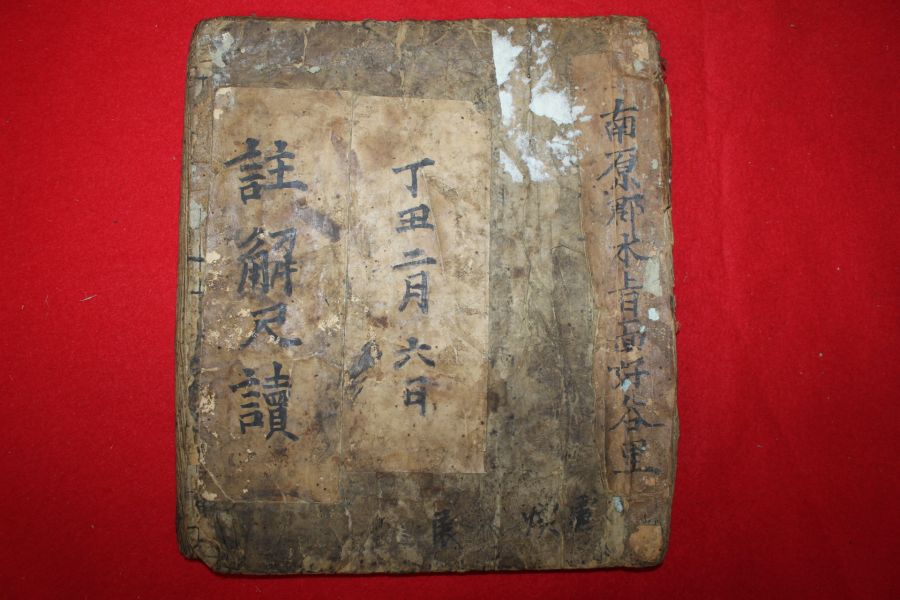 南原郡水旨面好谷里
丁丑二月六日
註解尺讀